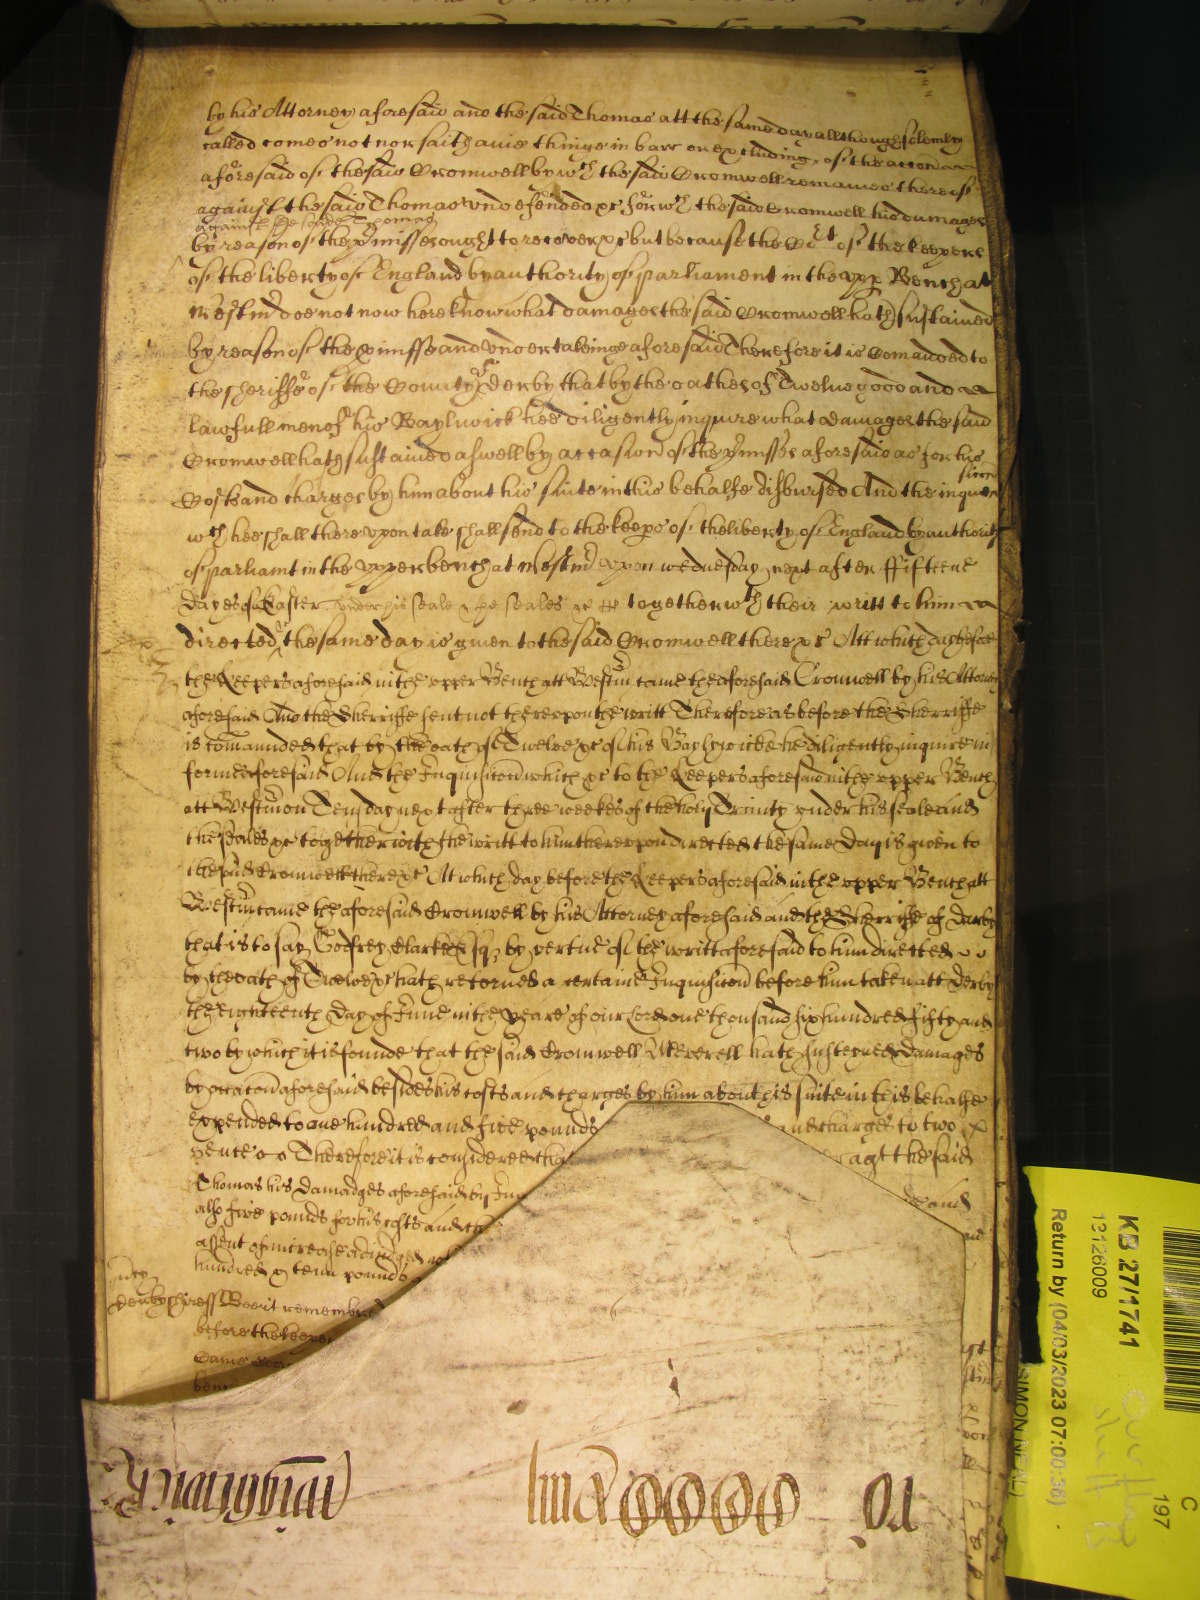 by his Attorney aforesaid and the said Thomas att the same day allthough solemly
called comes not nor saith anie thinge in barr or excluding of the accon
aforesaid of the said Cromwell by wch the said Cromwell remaines thereof
against the said Thomas undefended &c for wch the said Cromwell his damages
against the said Thomas
by reason of the pmisses ought to recover &c but because the Cort of the keepers
of the liberty of England by authority of parliament in the upp Bench at
Westmr doe not now here know what damages the said Cromwell hath sustained
by reason of the pmisses and undertakeinge aforesaid Therefore it is Comanded to
the sheriffe of the County of derby that by the oathes of Twelve good and
lawfull men of his Baylywick hee diligently inquire what damages the said
Cromwell hath sustained aswell by occasion of the pmisses aforesaid as for his
Costs and charges by him about his suite in this behalfe disbursed And the inquisicon
wch hee shall thereupon take shall send to the keeps of the liberty of England by authority
of parliamt in the upper bench at Westmr upon wednesday next after ffifteene
dayes of Easter under his seale & the seales &c together wth their writt to him
directed the same day is given to the said Cromwell there &c Att which day before
the Keepers aforesaid in the upper Bench att Westmr came the aforesaid Cromwell by his Attorney
aforesaid And the Sherriffe sent not thereupon the writt Therefore as before the Sherriffe
is comaunded that by the oath of Twelve &c of his Baylywicke he diligently inquire in
forme aforesaid And the Inquisicon which &c to the Keepers aforesaid in the upper Bench
att Westmr on Teusday next after three weekes of the holy Trinity under his seale and
the seales &c together with the writt to him thereupon directed the same day is given to
the said Cromwell there &c At which day before the Keepers aforesaid in the upper Bench att
Westmr came the aforesaid Cromwell by his Attorney aforesaid and the Sherriffe of Darby
that is to say Godfrey Clarke Esq by vertue of the writt aforesaid to him directed
by the oath of Twelve &c hath retorned a certaine Inquisicon before him taken att Derby
the eighteenth day of June in the yeare of our Lord one thousand six hundred fifty and
two by which it is founde that the said Cromwell Meverell hath susteyned damages
by occacon aforesaid besides his costs and charges by him about his suite in this behalfe
expended to one hundred and five pounds and charges to two
pence Therefore it is considered that agt the said
Thomas his damadges aforesaid by Inq and
also five pounds for his costs and ch
assent of increase adiudged
hundred & tenn pounds
derbyshire ss Bee it remembred
before the keepe
same
KB 27/1741
13126009
Return by (04/03/2023 07:00:36)
SIMON NEAL)
C
197